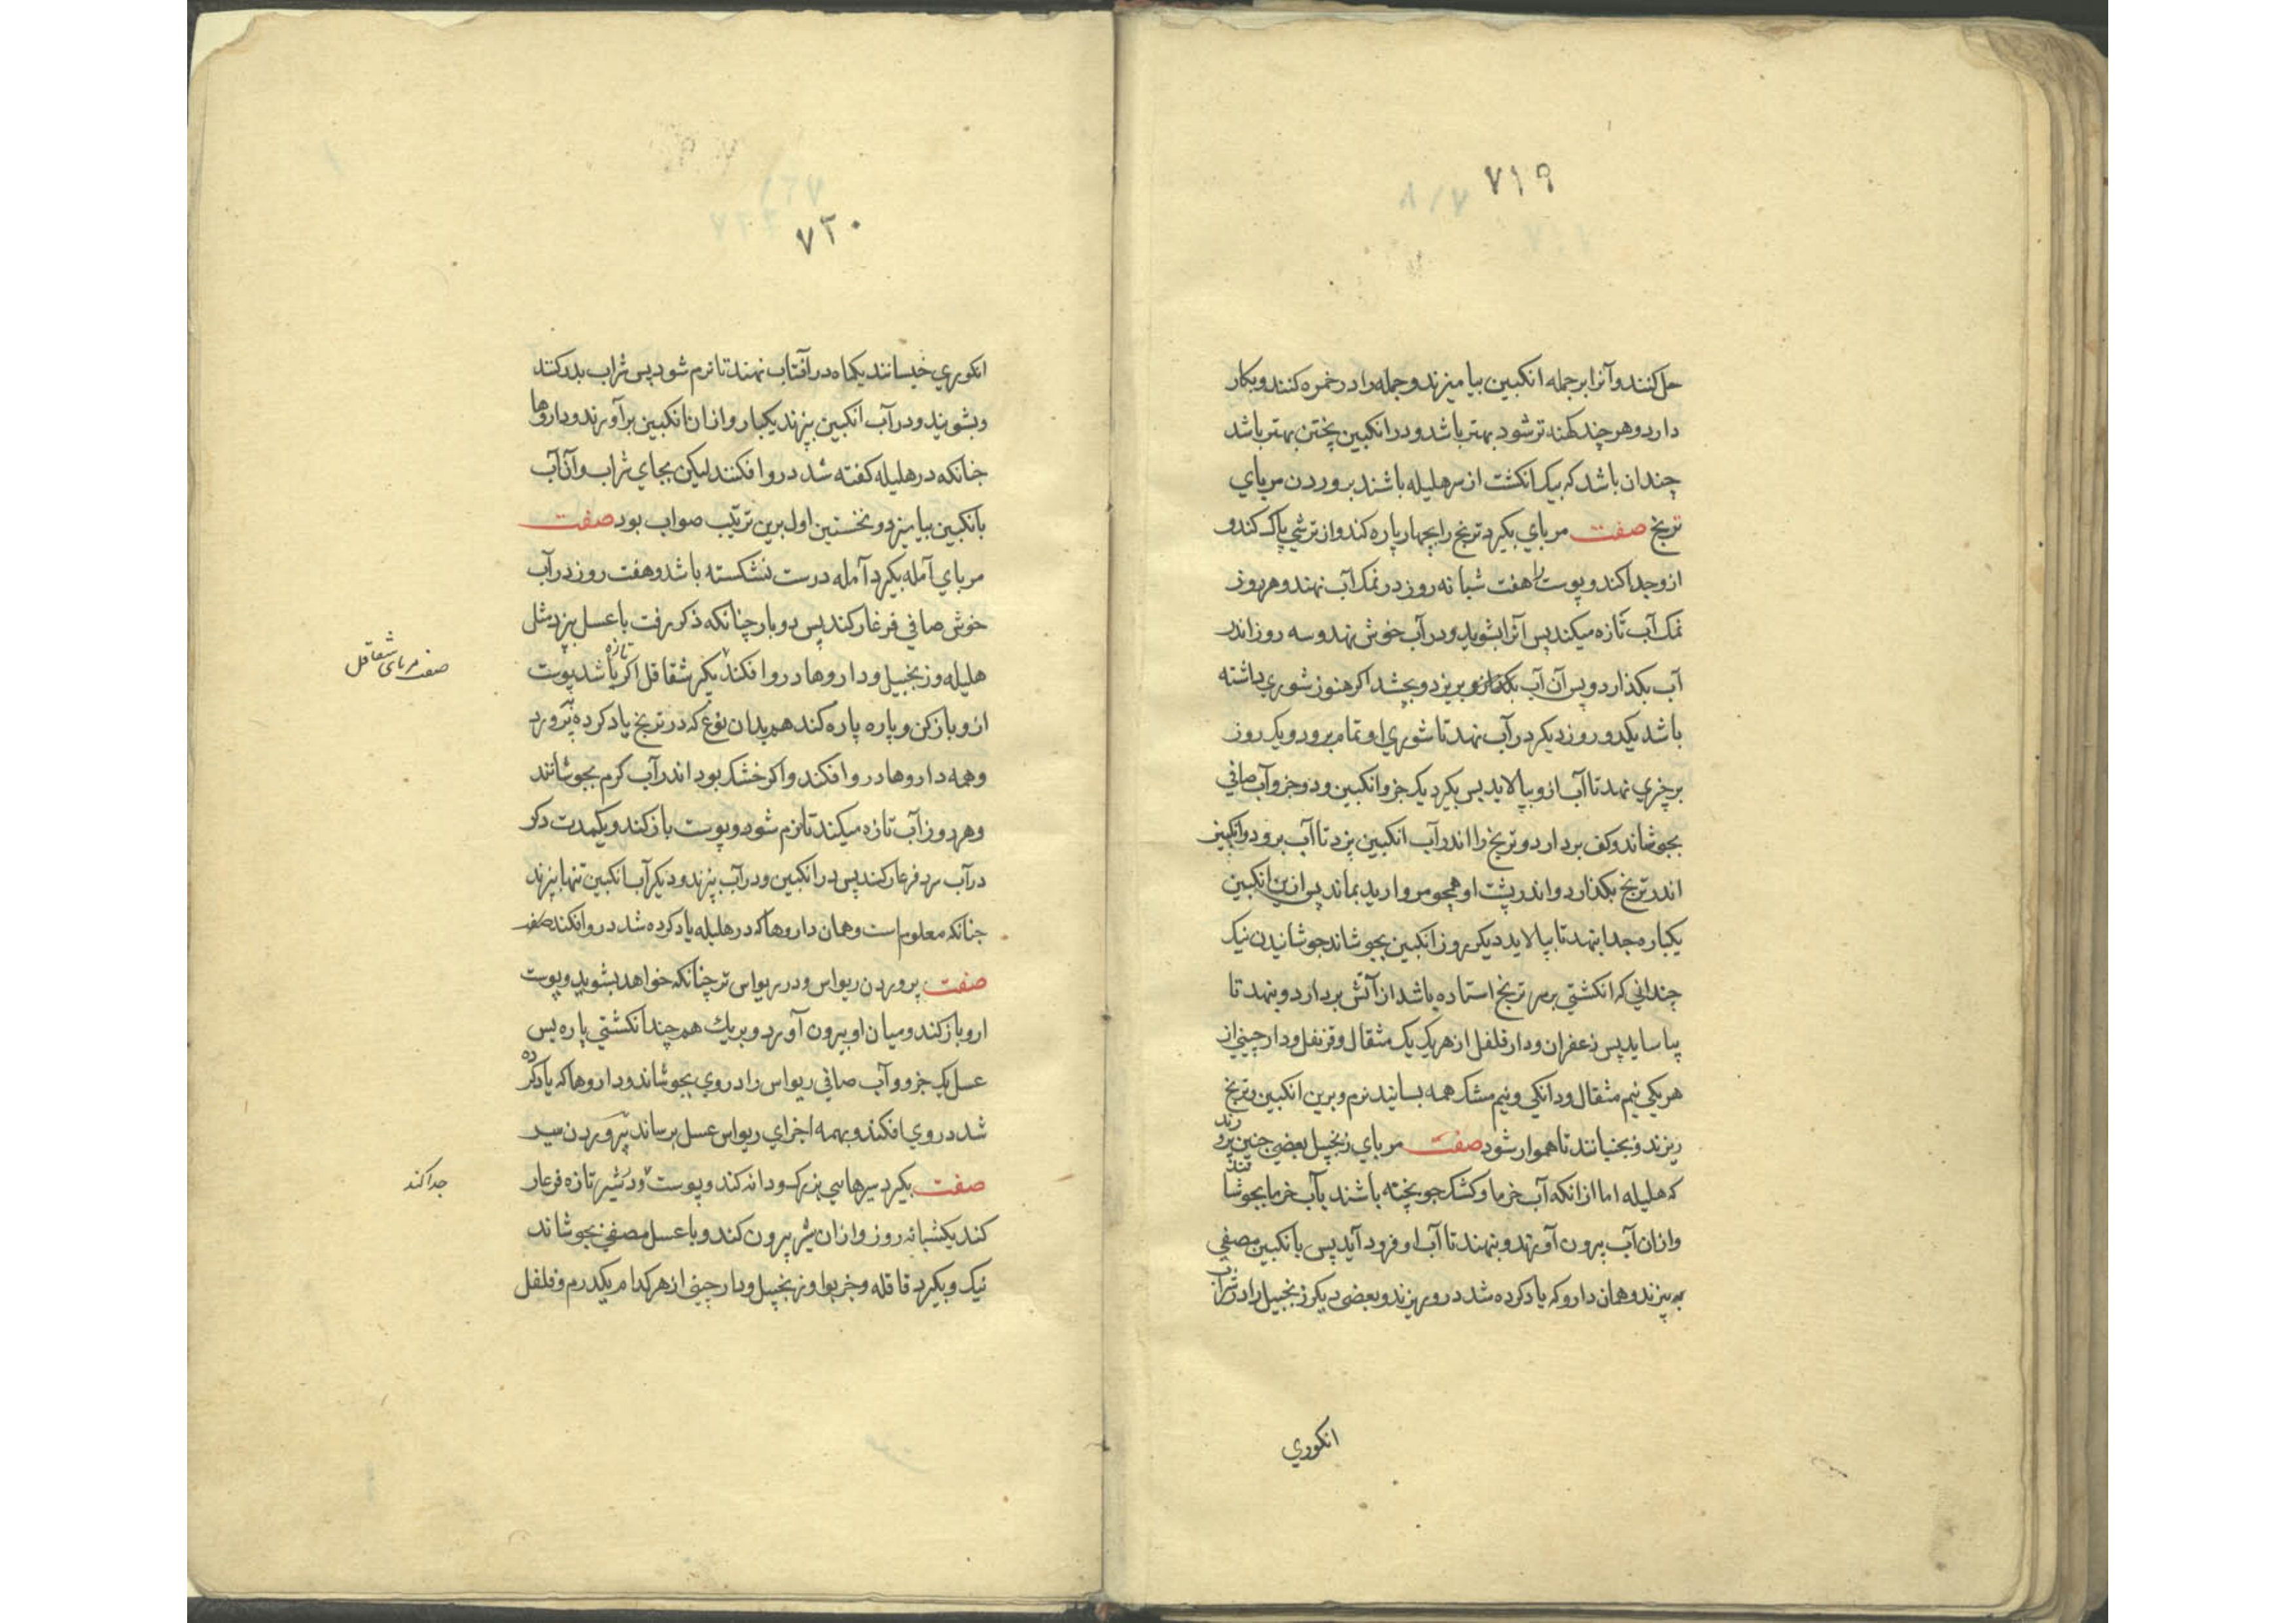 ۷۱۹
حل کنند و آنرا بر جمله انکبین بیامیزند و جمله را در خمره کنند و بکار
دارد و هر چند کهنه تر شود بهتر باشد و در انکبین پختن بهتر باشد
چندان باشد که یک انکشت از سر هلیله باشند پروردن مربای
ترنج صفت مربای بکیرد ترنج را بچهار پاره کند و از ترشی پاک کند و
ازو جدا کند و پوست را هفت شبانه روز در نمک آب نهند و هر روز
نمک آب تازه میکند پس آنرا بشوید و در آب خوش نهد و سه روز اندر
آب بکذارد و پس آن آب بریزد و بچشد اکر هنوز شوری داشته
باشد یکدو روز دیکر در آب نهد تا شوری او تمام برود و یک روز
بر چیزی نهد تا آب ازو بپالاید پس بکیرد یک جزو انکبین و دو جزو آب صافی
بجوشاند و کف بردارد و ترنج را اندر آب انکبین پزد تا آب برود و انکبین
اندر ترنج بکذارد و اندر پشت او همچو مروارید بماند پس ازین انکبین
یکباره جدا بنهد تا بپالاید دیکر روز انکبین بجوشاند جوشانیدن نیک
چندانی که انکشتی بر سر ترنج استاده باشد از آتش بردارد و بنهد تا
بیاساید پس زعفران و دار فلفل از هر یک یک مثقال و قرنفل و دارچینی از
هر یکی نیم مثقال و دانکی و نیم مشک همه بسایند نرم و برین انکبین و ترنج
ریزند و بجنبانند تا هموار شود صفت مربای زنجبیل بعضی چنین پرورند
که هلیله اما از انکه آب خرما و کشک جو پخته باشند بآب خرما بجوشانند
و ازان آب بیرون آورند و بنهند تا آب او فرود آید پس بانکبین مصفی
بپزند و همان دارو که یاد کرده شد درو ریزند و بعضی دیکر زنجبیل را در شراب
انکوری
۷۲۰
انکوری خیسانند یکماه در آفتاب نهند تا نرم شود پس شراب بدر کنند
و بشویند و در آب انکبین بپزند یکبار و ازان انکبین برآورند و داروها
چنانکه در هلیله کفته شد درو افکنند لیکن بجای شراب و آن آب
بانکبین بیامیزد و نخستین اول برین ترتیب صواب بود صفت
مربای آمله بکیرد آمله درست نشکسته باشد و هفت روز در آب
خوش صافی فرغار کند پس دو بار چنانکه ذکر رفت با عسل بپزد مثل
هلیله و زنجبیل و داروها درو افکند بکیر شقاقل اکر تازه باشد پوست
ازو باز کن و پاره پاره کند هم بدان نوع که در ترنج یاد کرده بپرورد
و همه داروها درو افکند و اکر خشک بود اندر آب کرم بجوشانند
و هر روز آب تازه میکند تا نرم شود و پوست باز کند و یکمدت دکر
در آب سرد فرغار کند پس در انکبین و در آب بپزند و دیکر آب انکبین تنها بپزند
چنانکه معلوم است و همان داروها که در هلیله یاد کرده شد درو افکند صفت
صفت پروردن ریواس و در ریواس تر چنانکه خواهد بشوید و پوست
ازو باز کند و میان او بیرون آورد و ببرید هم چند انکشتی پاره پس
عسل یک جزو و آب صافی ریواس را در وی بجوشاند و داروها که یاد کرده
شد در وی افکند و بهمه اجزای ریواس عسل برساند پروردن سیر
صفت بکیرد سیرهای بزرک و دانه کند و پوست و در شیر تازه فرغار
کند یکشبانه روز و ازان شیر بیرون کند و با عسل مصفی بجوشاند
نیک و بکیرد قاقله و خیربوا و زنجبیل و دارچینی از هر کدام یکدرم و فلفل
صفت مربای شقاقل
جدا کند